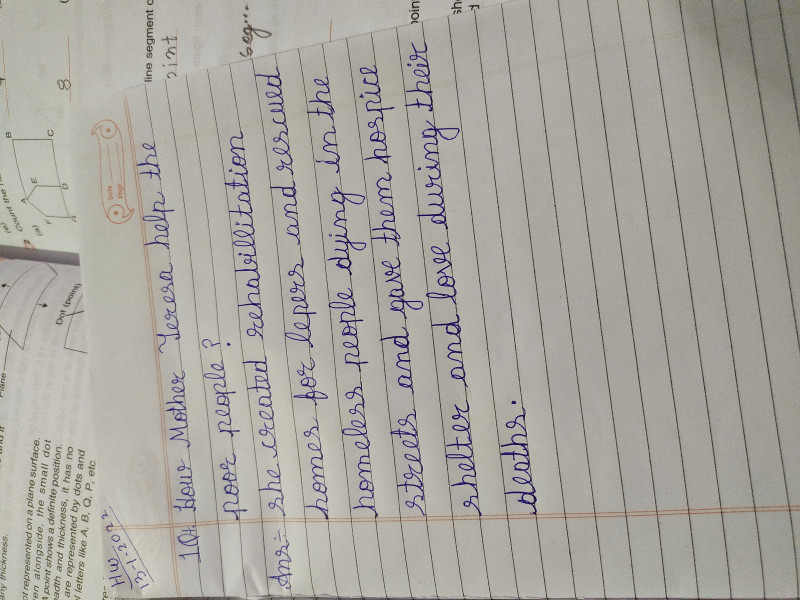 HW
13-1-2022
Date
Page
10. How Mother Teresa help the
poor people?
Ans:- she created rehabillitation
homes for lepers and rescued
homeless people dying in the
streets and gave them hospice
shelter and love during their
deaths.
line segment
oint
seg...
8
Count the
(e)
(a)
A
B
C
D
E
F
Plane
Dot (point)
any thickness.
ot represented on a plane surface.
en alongside, the small dot
A point shows a definite position.
adth and thickness, it has no
are represented by dots and
l letters like A, B, Q, P, etc